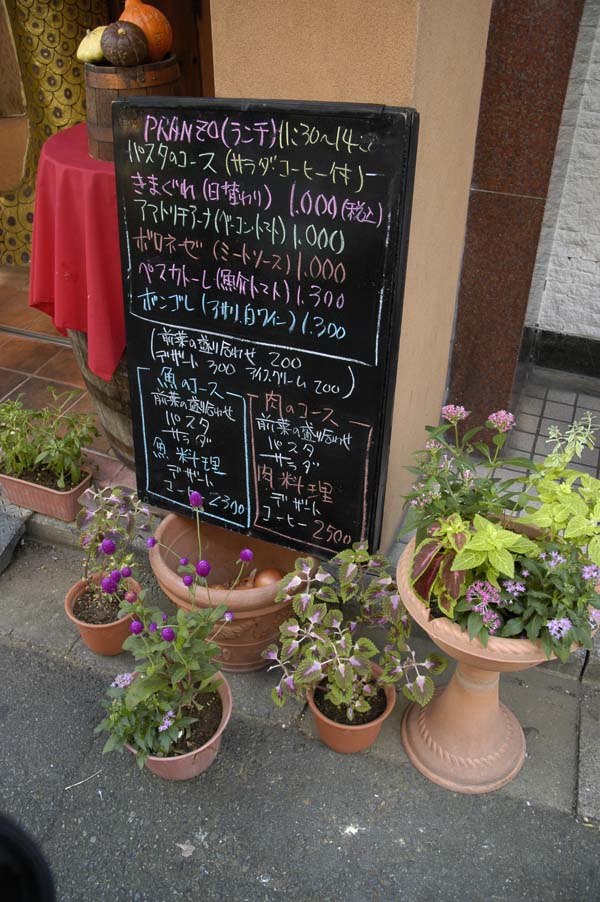 PRANZO(ランチ)11:30~14:
パスタのコース(サラダコーヒー付)
きまぐれ(日替わり) 1.000(税込)
アマトリチアーナ(ベーコントマト)1.000
ボロネーゼ(ミートソース)1.000
ペスカトーレ(魚介トマト)1.300
ボンゴレ(アサリ、白ワイン)1.300
(前菜の盛り合わせ 200
デザート 300 アイスクリーム 200)
魚のコース
前菜の盛り合わせ
パスタ
サラダ
魚料理
デザート
コーヒー 2300
肉のコース
前菜の盛り合わせ
パスタ
サラダ
肉料理
デザート
コーヒー 2500